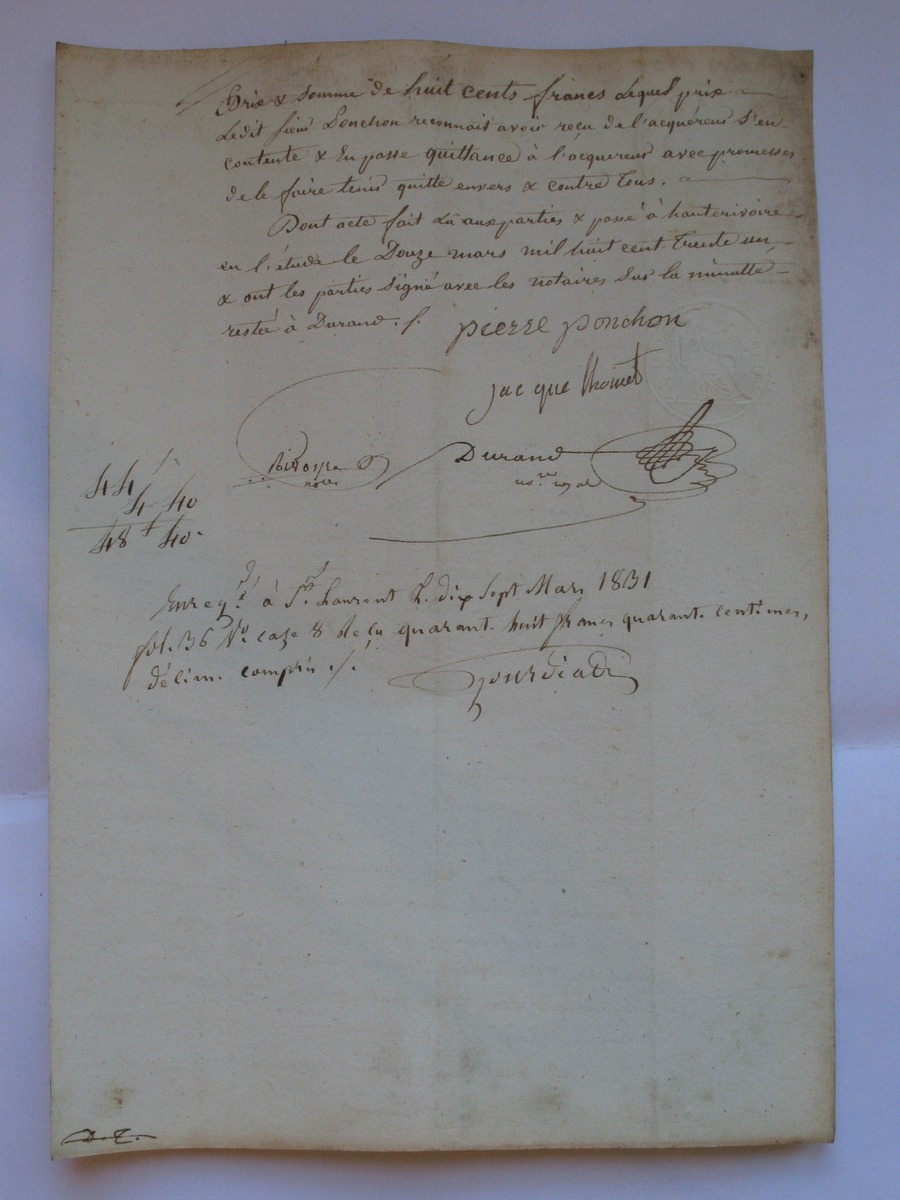 Prix & somme de huit cents francs Lequel prix
Ledit sieur Ponchon reconnait avoir reçu de l'acquéreur S'en
contente & En passe quittance à l'acquereur avec promesses
de le faire tenir quitte envers & contre tous.
Dont acte fait Lu aux parties & passé à hauterivoire
en l'étude le Douze mars mil huit cent trente un
& ont les parties signé avec les notaires sur la minutte
restée à Durand. /.
pierre ponchon
jacque
Durand
nore royal
nore
44
4 40
48 f 40
Enregt. à St. Laurent le dix Sept Mars 1831
fol. 36 Vo. caze 8 Reçu quarante huit francs quarante centimes,
décime compris ./.
D.T.